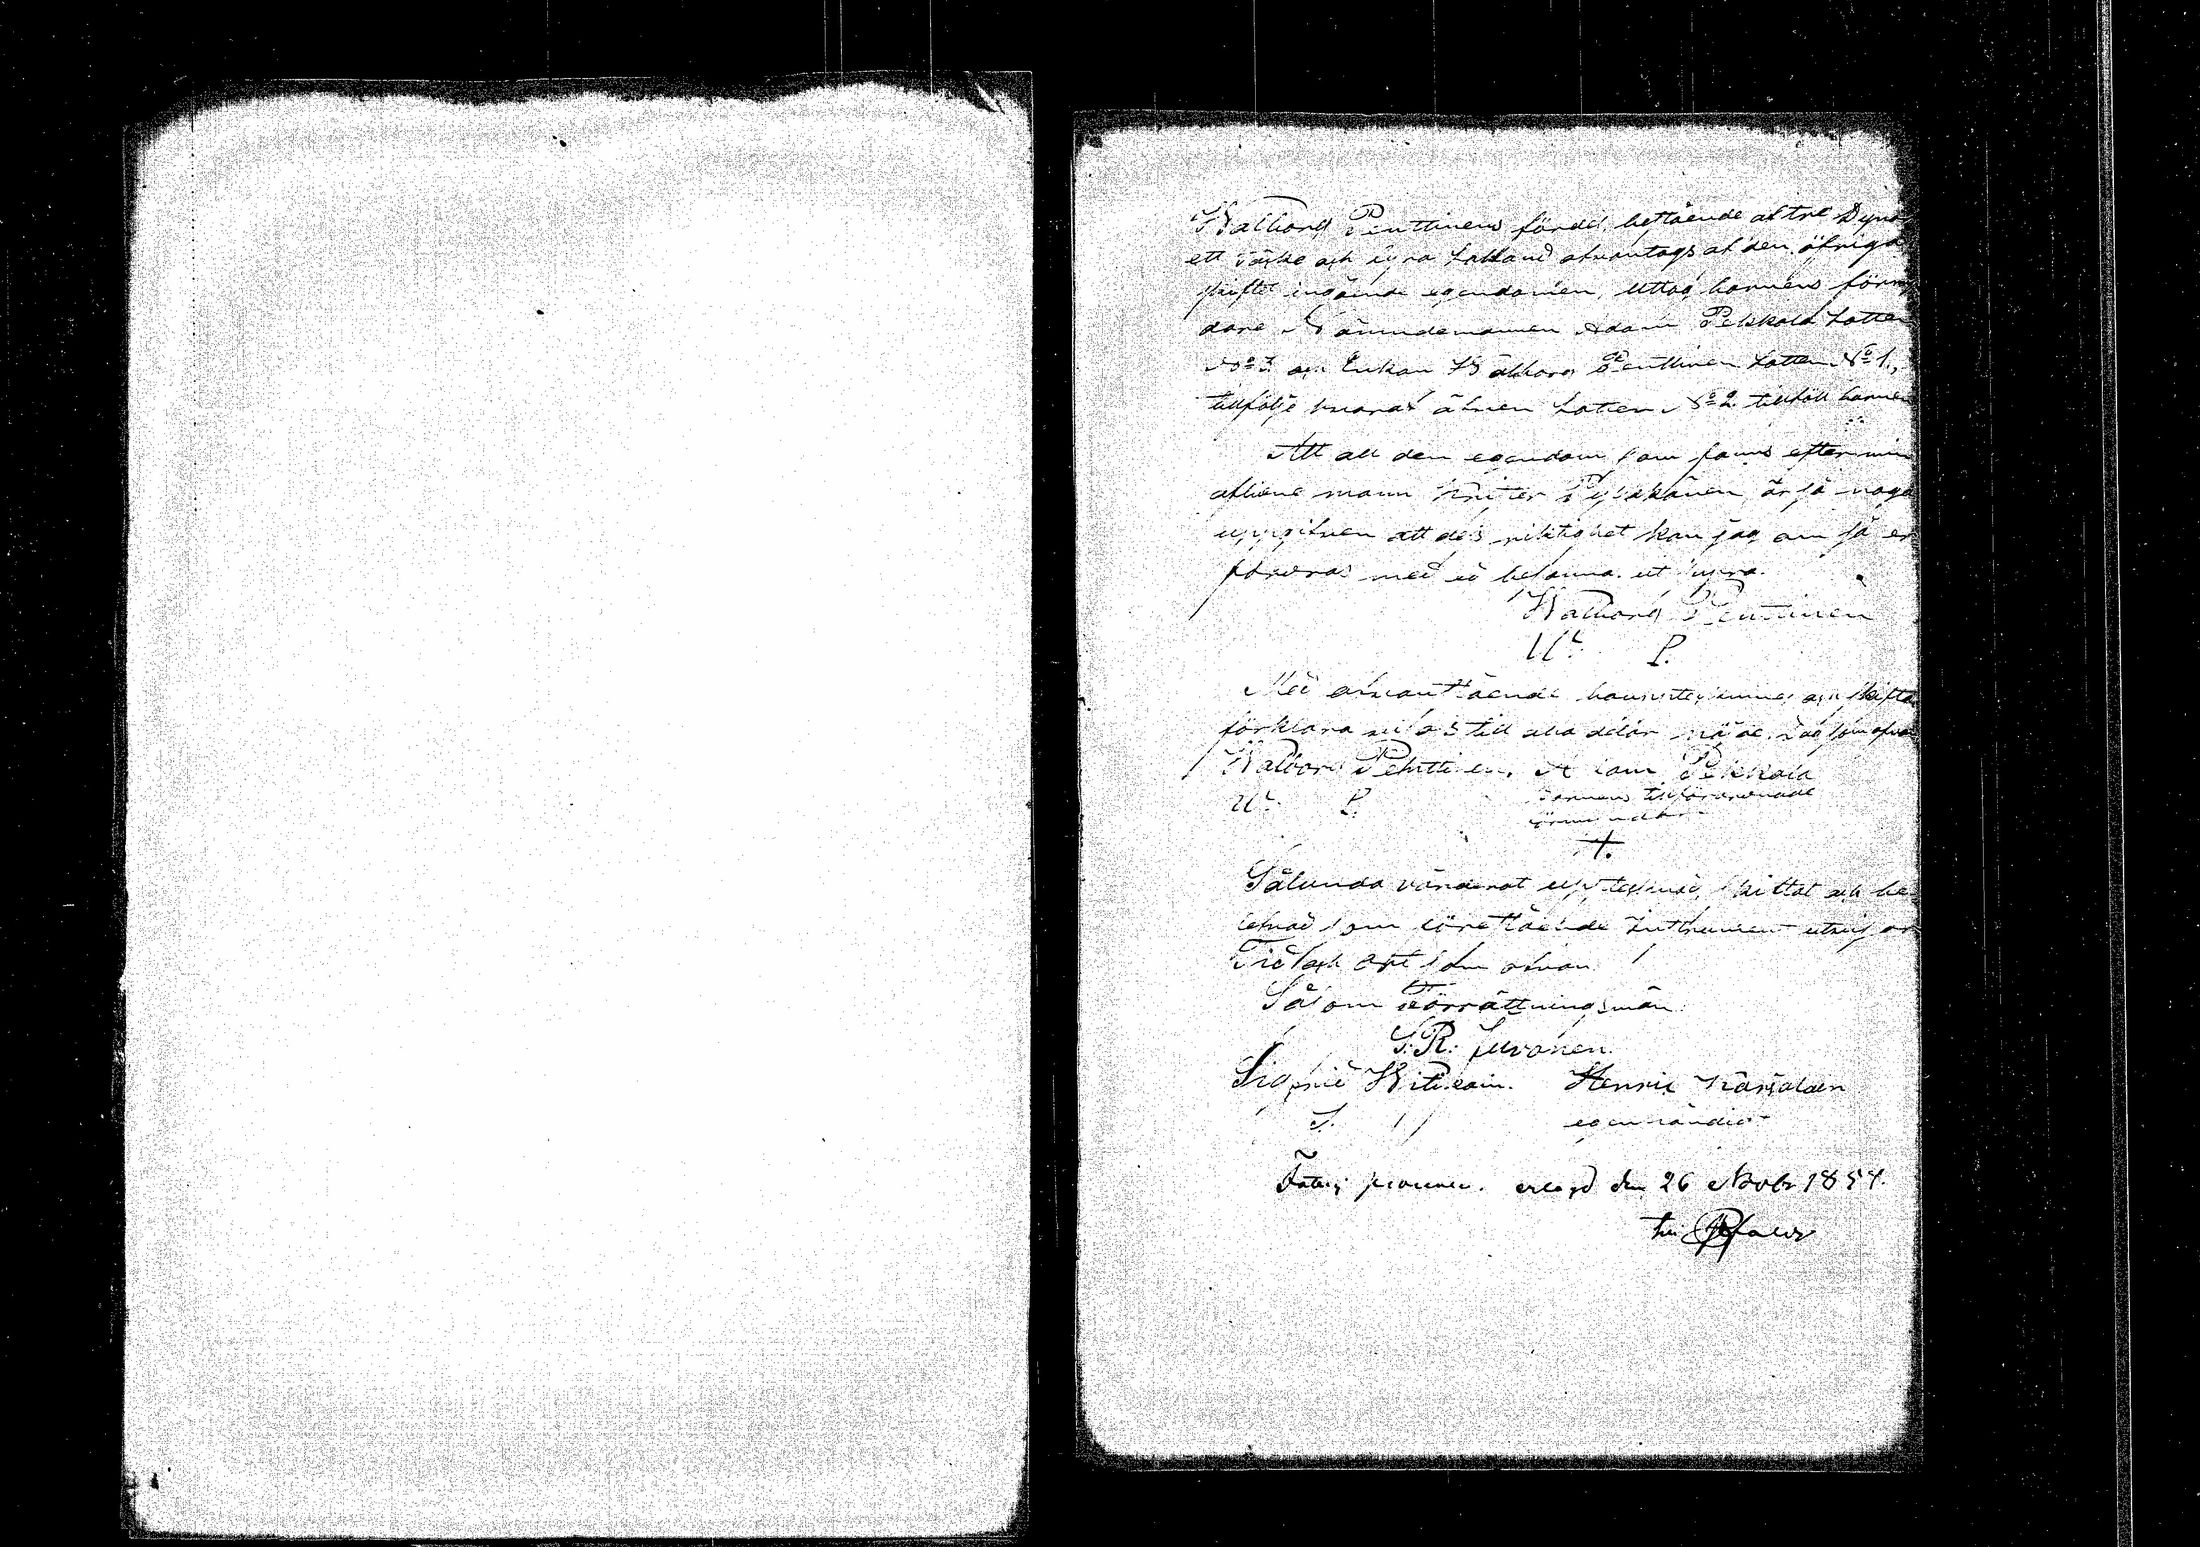 Walborg Penttinens fördel, bestående af tre Dynor
ett Täcke och fyra Lakland afvantags af den öfriga
skiftet ingående egendomen, uttog barnens förmyn
dare Nämndemannen Adam Pekkala Lotten
No 3 och Enkan Walborg Penttinen Lotten No 1,
tillfölje hvaraf äfven Lotten No 2 tillföll barnen
Att all den egendom som fanns efter min
aflidne mann Krister Pylkkänen är så noga
uppgifven att dess riktighet kan jag om så er
fordras med ed besanna. ut supra.
Walborg Penttinen
W. P.
Med ofvanstående bouppteckning och skifte
förklara vi oss till alla delar nöjde. Dag som ofvan
Walborg Penttinen. Adam Pekkala
W. P. barnens tillförordnade
förmyndare
+.
Sålunda värderat upptecknad, skiftat och be
lefvad som förestående Instrument utvisar
Tid och Ort som ofvan
Såsom Förrättningsmän
S. R. Juvonen.
Sigfrid Witikain. Henric Karjalain
S. W egenhändigt
Fattig procenten. erlagd den 26 Novbr 1854.